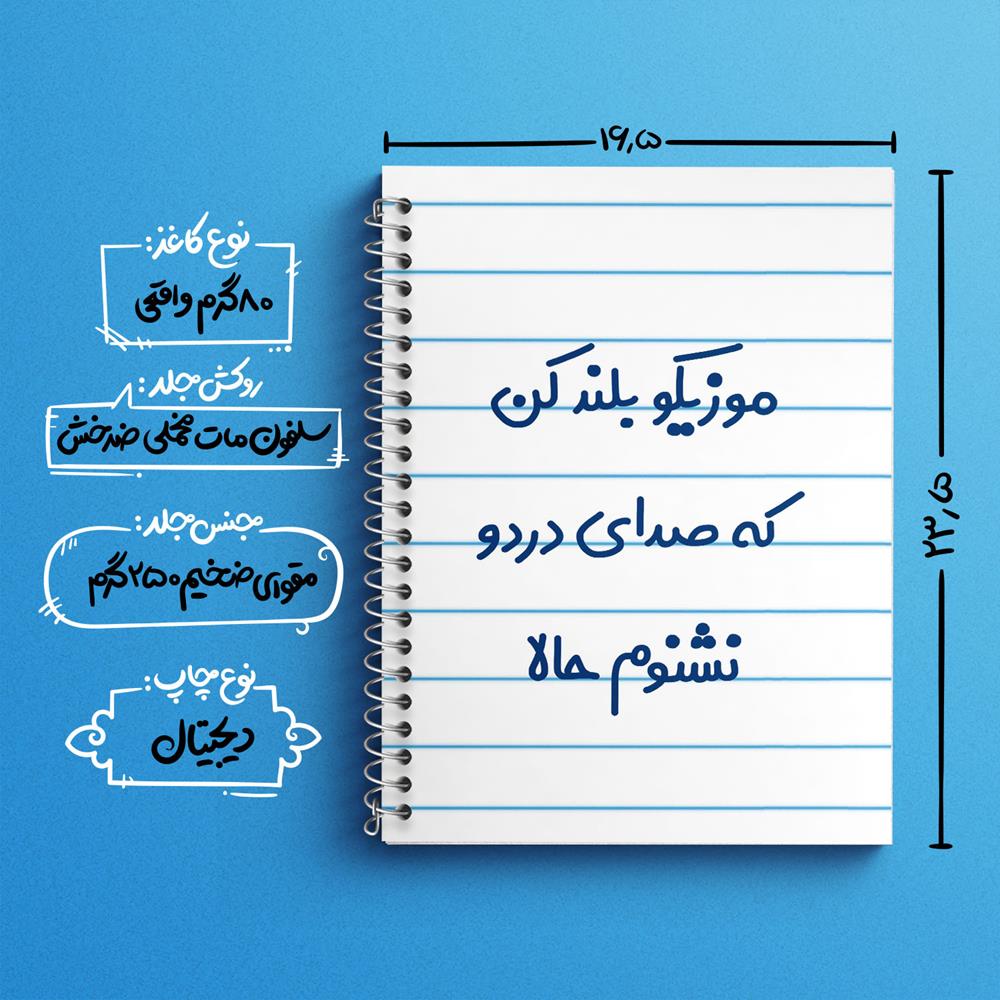 ۱۶٫۵
۲۳٫۵
موزیکو بلند کن
که صدای دردو
نشنوم حالا
نوع کاغذ:
۸۰ گرم واقعی
روکش جلد:
سلفون مات مخملی ضدخش
جنس جلد:
مقوای ضخیم ۲۵۰ گرم
نوع چاپ:
دیجیتال